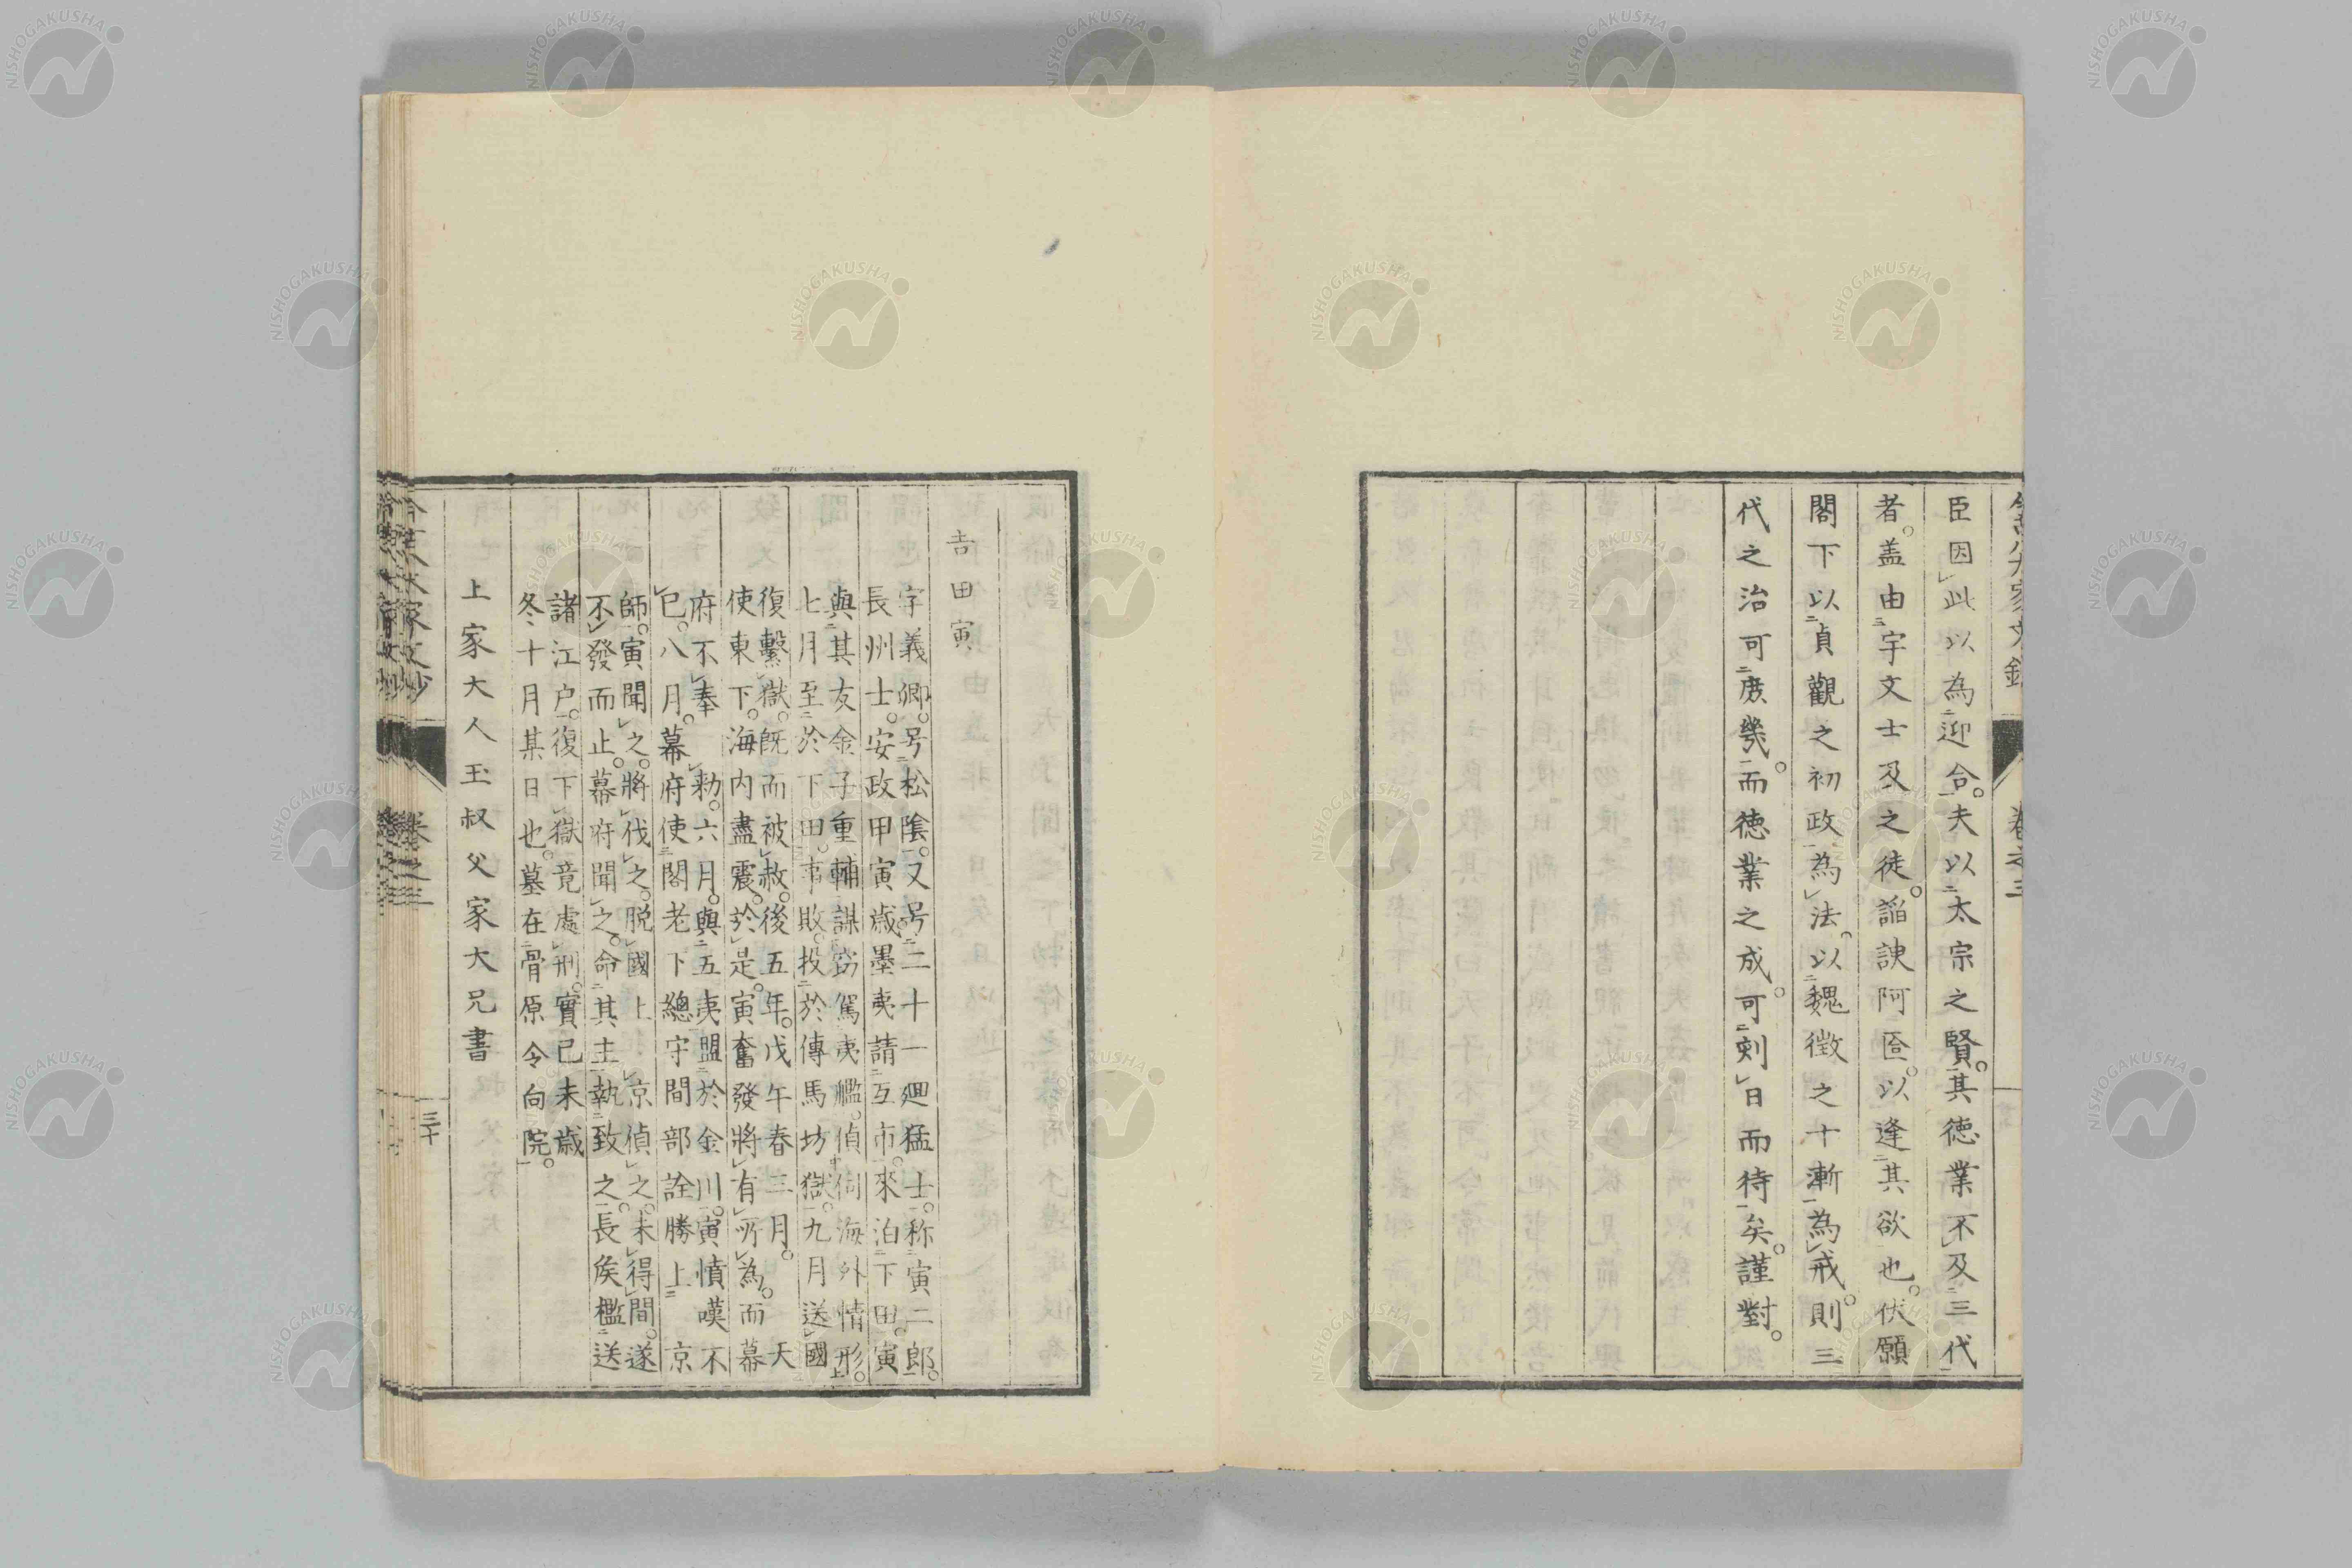 臣因此以為迎合。夫以太宗之賢。其徳業不及三代
者。盖由宇文士及之徒。諂諛阿匼。以逢其欲也。伏願
閣下以貞觀之初政為法。以魏徴之十漸為戒。則三
代之治可庻幾。而徳業之成。可剋日而待矣。謹對。
卷之三
吉田寅
字義卿。号松陰。又号二十一廻猛士。称寅二郎。
長州士。安政甲寅歳墨夷請互市。來泊下田。寅
與其友金子重輔謀窃駕夷艦。偵伺海外情形。
七月至於下田。事敗。投於傳馬坊獄。九月送國
復繋獄。既而被赦。後五年。戊午春三月。 天
使東下。海内盡震。於是。寅奮發將有所為。而幕
府不奉 勅。六月。與五夷盟於金川。寅憤嘆不
已。八月。幕府使閣老下總守間部詮勝上 京
師。寅聞之。將伐之。脱國上京偵之。未得間。遂
不發而止。幕府聞之。命其主執致之。長矦檻送
諸江户。復下獄竟處刑。實已未歳
冬十月某日也。墓在骨原令向院。
上家大人玉叔父家大兄書
卷之三
三十
NISHOGAKUSHA